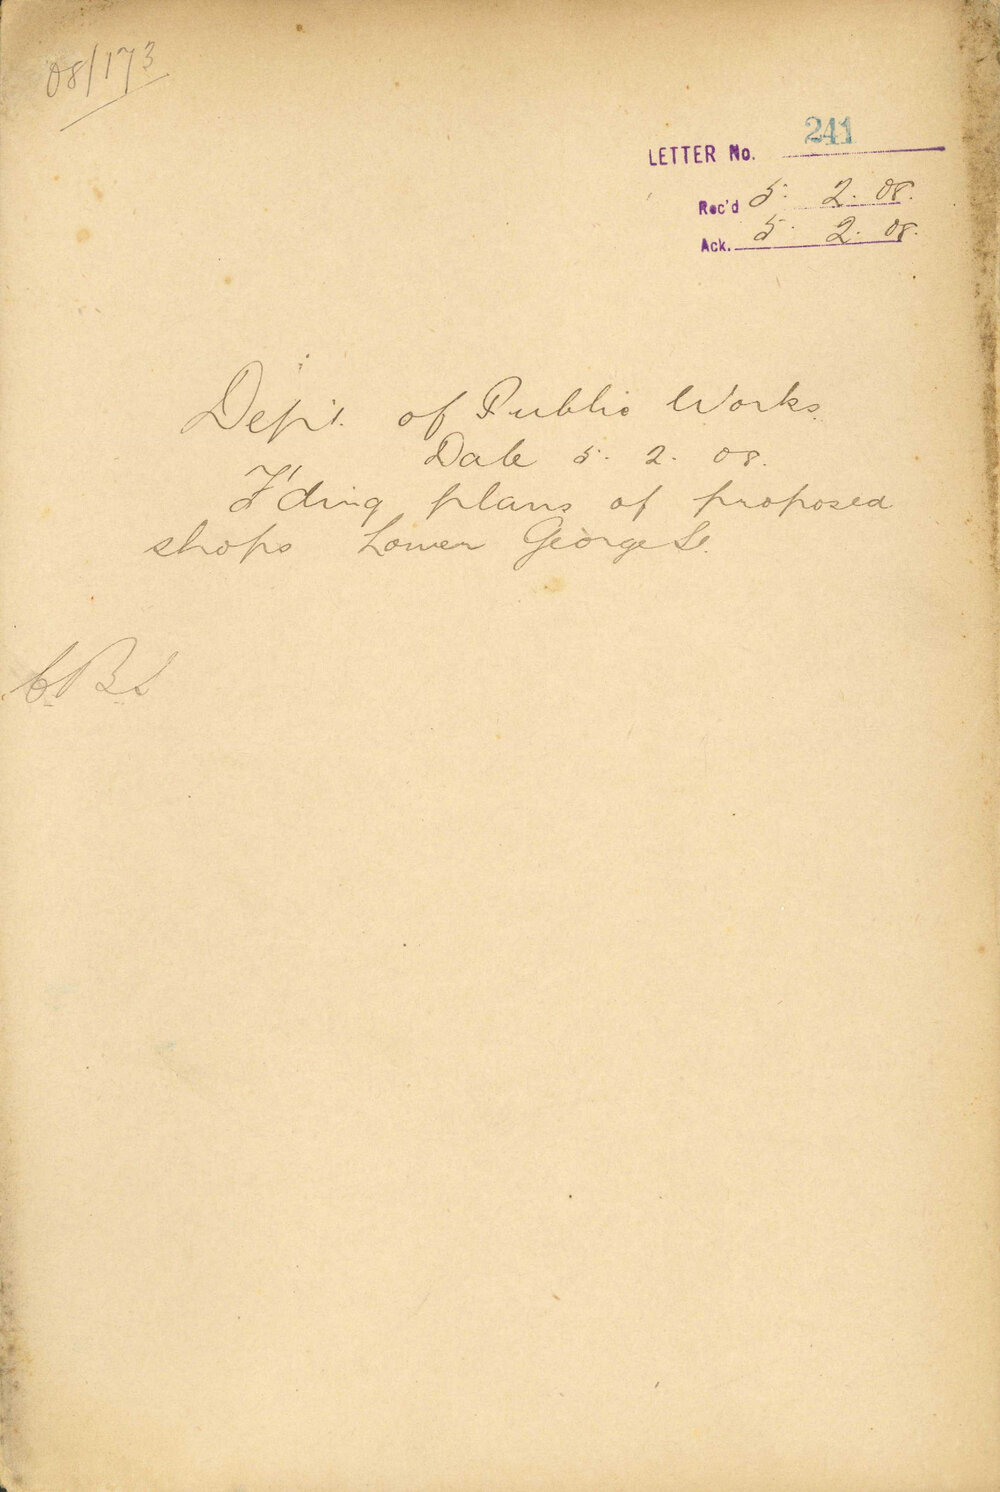 08/173
LETTER No. 241
Rec'd 5. 2. 08.
Ack. 5. 2. 08.
Dep't. of Public Works.
Date 5. 2. 08.
F'ding plans of proposed
shops Lower George St.
C.B.S